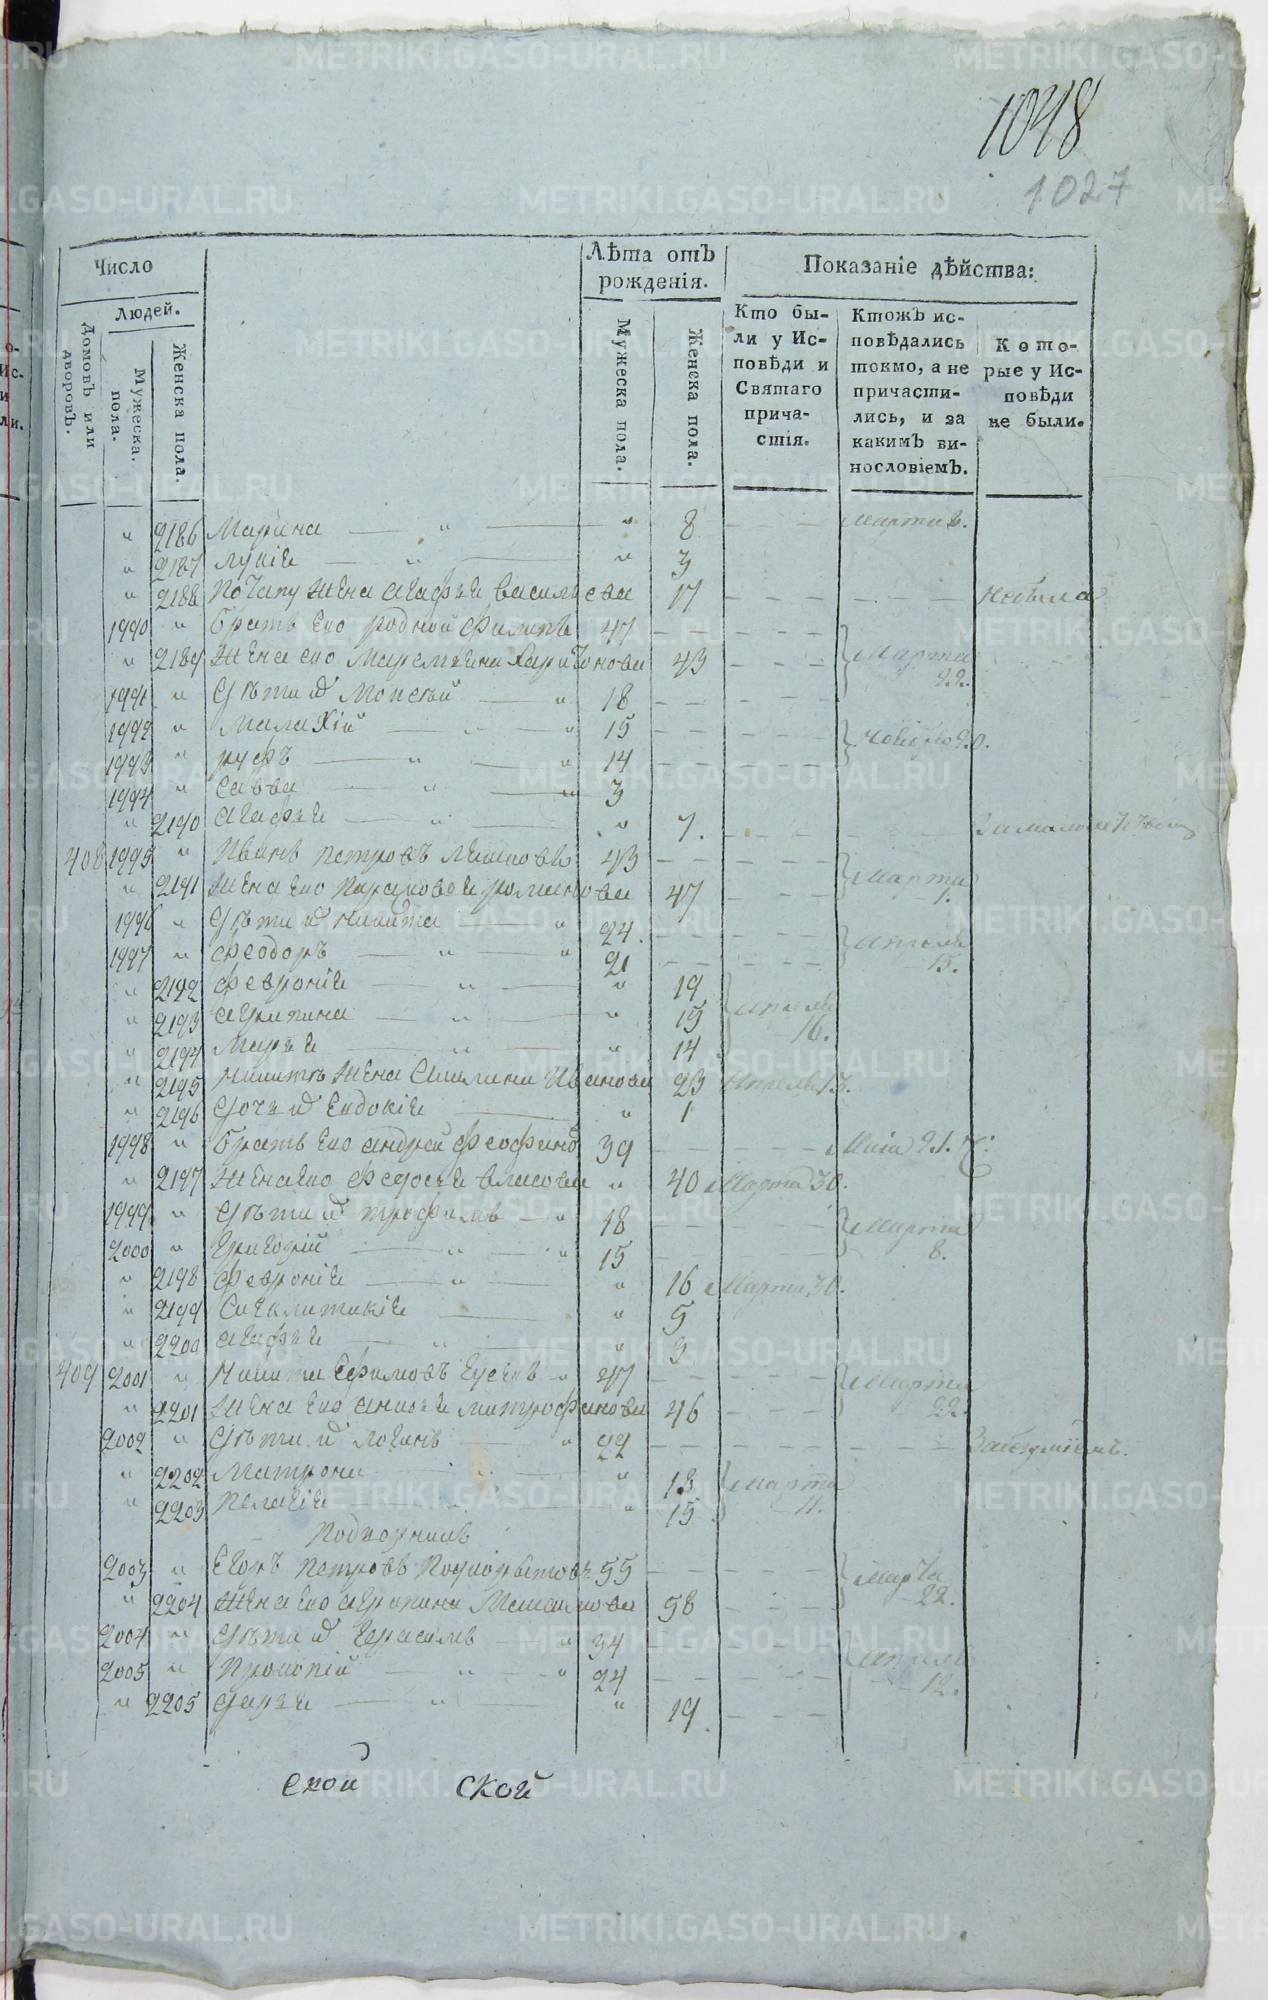 1048
1027
Число
Людей.
Домовъ или дворовъ.
Мужеска. пола.
Женска пола.
Лѣта отъ рожденія.
Мужеска пола.
Женска пола.
Показаніе дѣйства:
Кто были у Исповѣди и Святаго причастія.
Ктожъ исповѣдались токмо, а не причастились, и за какимъ винословіемъ.
Которые у Исповѣди не были.
" 2186 Марина — " — " 8 Марта
" 2187 Лукія — " — " 3
" 2188 Потапу жена Агафья Васильева 17 Небыла
1990 " Братъ его родной Филипъ 47
" 2189 Жена его Маремьяна Харитонова 43 Марта 22.
1991 " Дѣти их Моисей — " 18
1992 " Малахій — " 15
1993 " Руфъ — " — " 14
1994 " Савва — " — " 3
" 2190 Агафья — " — " 7.
408 1995 " Иванъ Петровъ 43
" 2191 Жена его Парасковья Романова 47 Марта 1.
1996 " Дѣти их Никита — " 24.
1997 " Феодоръ — " — " 21 Апреля 15.
" 2192 Феврония — " — " 19
" 2193 Агрипина — " — " 15 Апреля 16.
" 2194 Марья — " — " 14
" 2195 Никиты жена Ивановa 23 Апреля 13.
" 2196 Дочь их Евдокія — " 1
1998 " Братъ его Андрей 39 Маія 21.
" 2197 Жена его Федосья Власова " 40 Марта 30.
1999 " Дѣти их Трофимъ — " 18 Марта
2000 " Григорій — " — " 15 8.
" 2198 Феврония — " — " 16 Марта 30.
" 2199 Синклитикія — " 5
" 2200 Агафья — " — " 3.
409 2001 " Никита Ефимовъ Гусевъ " 47 Марта
" 2201 Жена его Анисья Митрофанова 46 22.
2002 " Дѣти их Логинъ — " 22
" 2202 Матрона — " — " 18 Марта
" 2203 Пелагія — " — " 15 11.
Подворникъ
2003 " Егоръ Петровъ 55 Марта
" 2204 Жена его Агрипина 58 22.
2004 " Дѣти их Герасимъ — " 34 Апреля
2005 " Прокопій — " — " 24 12.
" 2205 Дарья — " — " 19
ской ской
METRIKI.GASO-URAL.RU